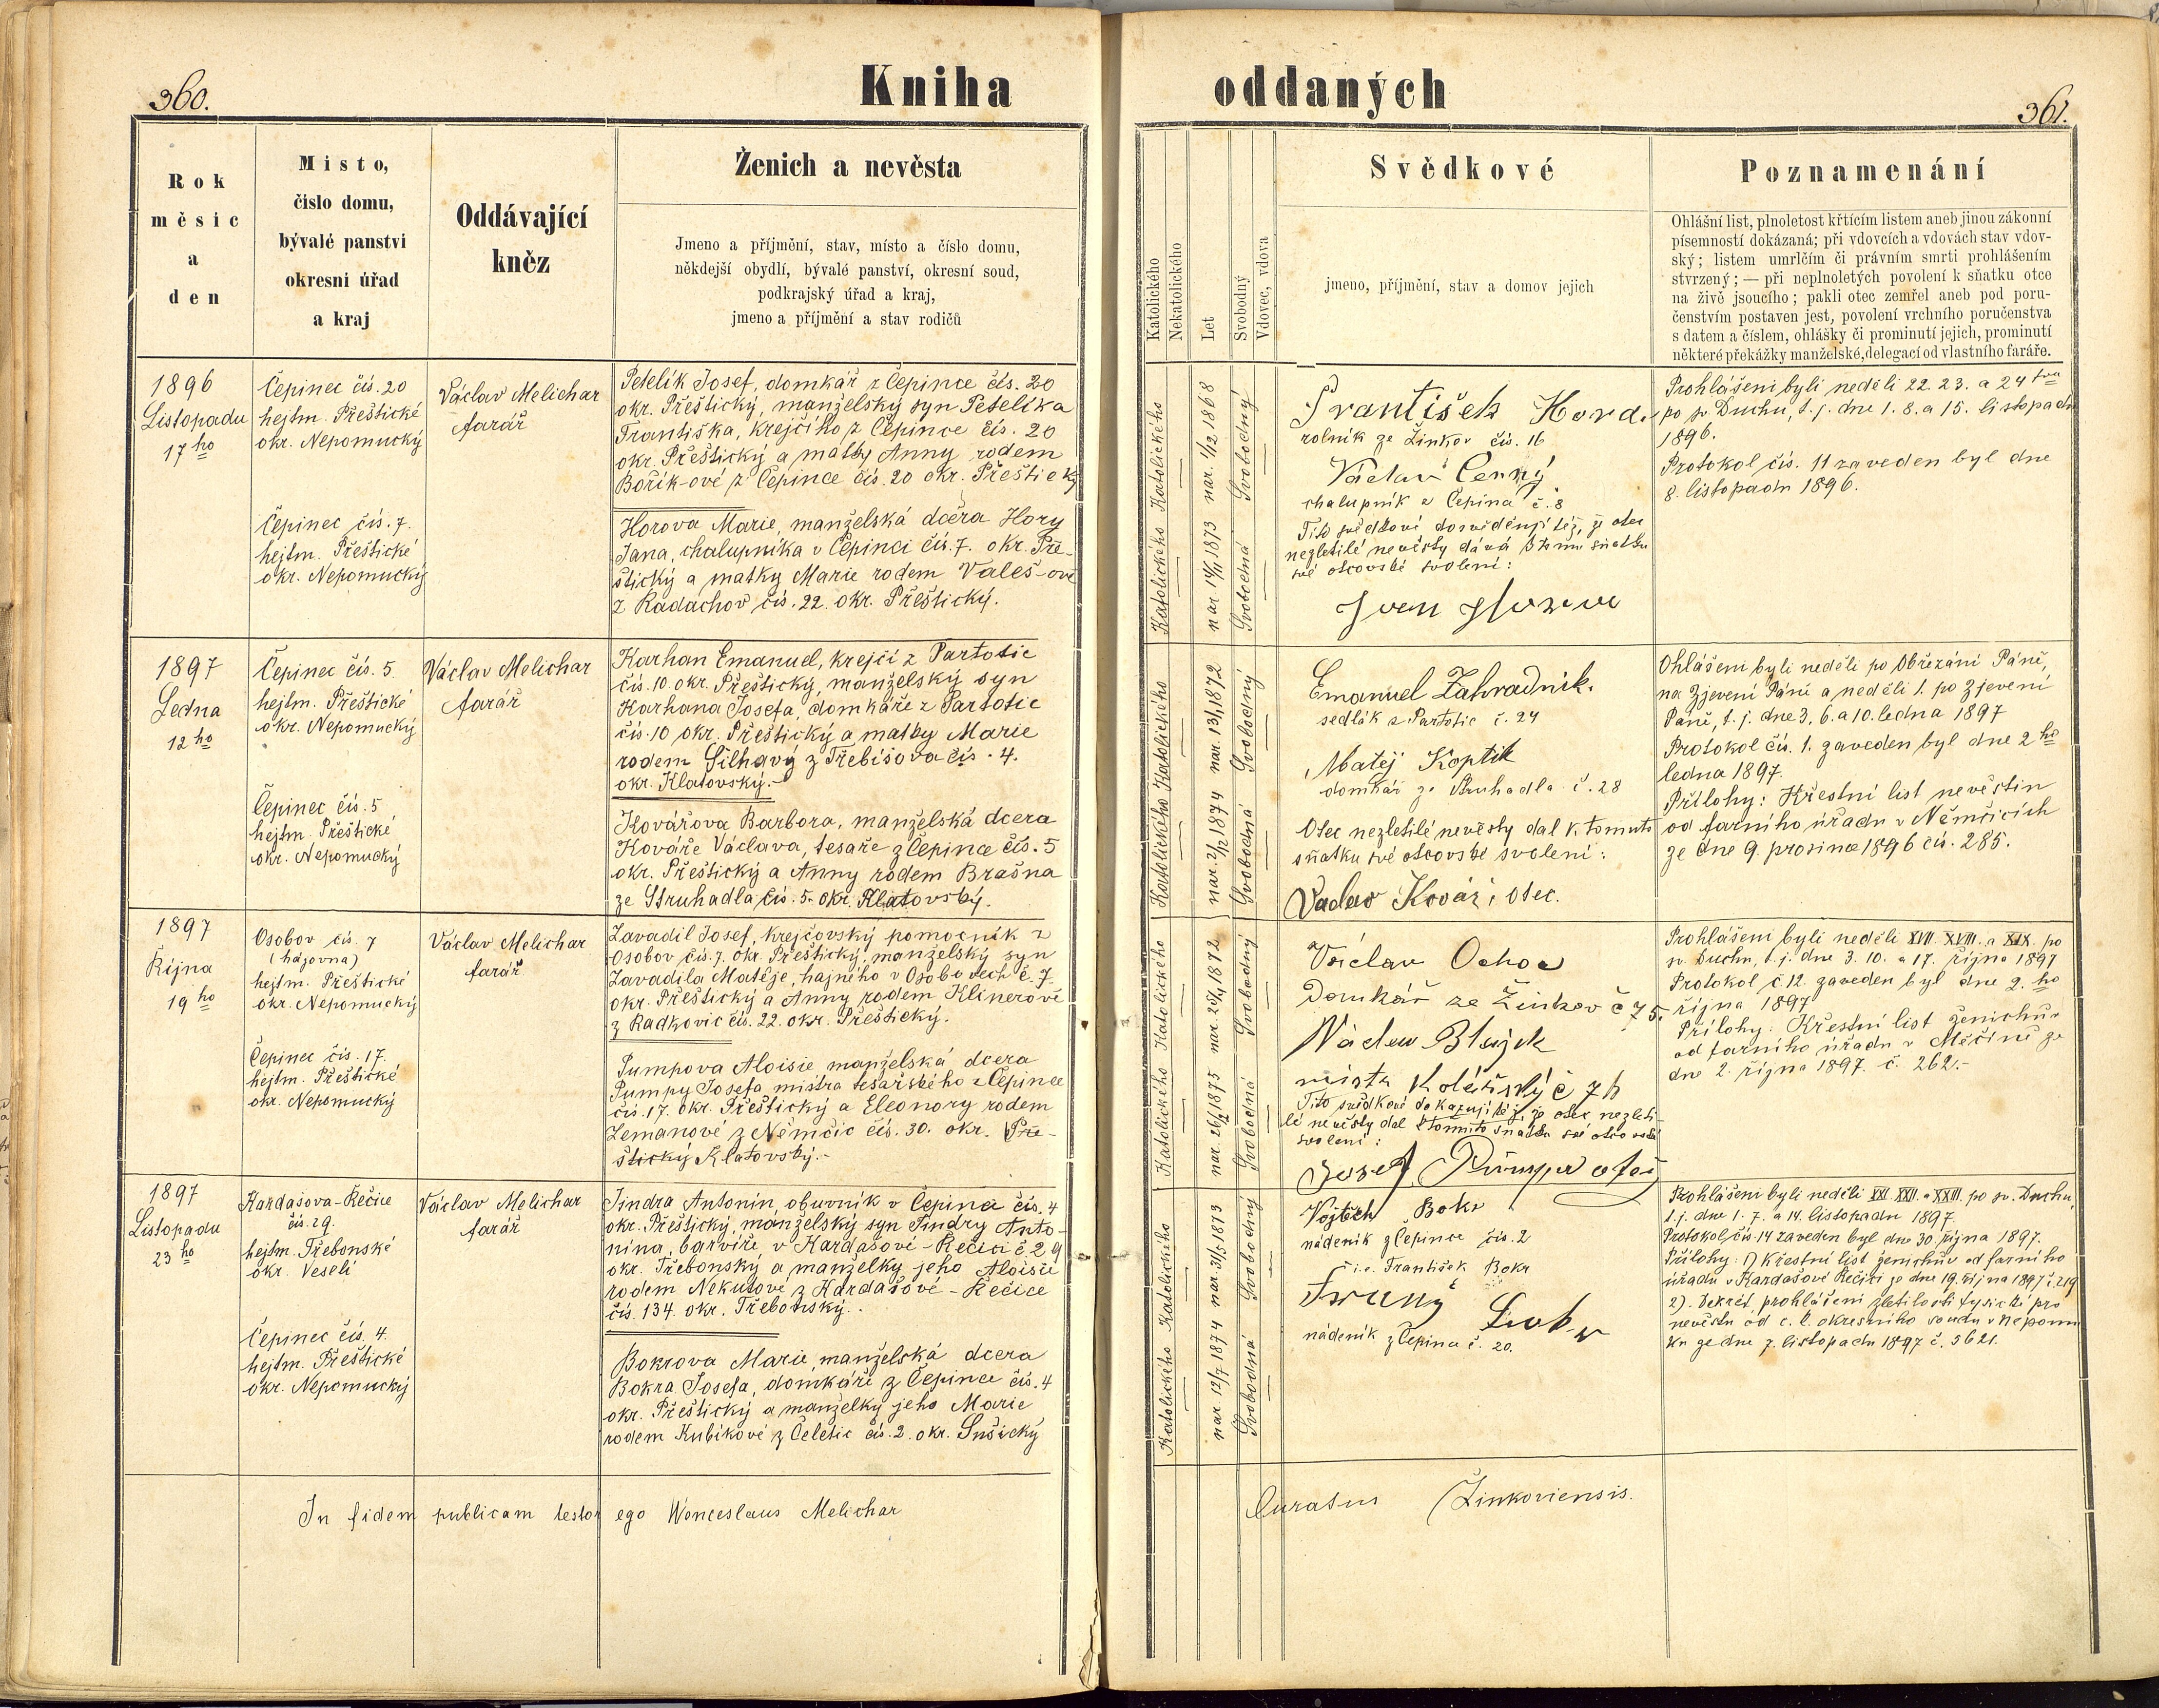 360.
Kniha
Rok
měsíc
a
den
Místo,
číslo domu,
bývalé panství
okresní úřad
a kraj
Oddávající
kněz
Ženich a nevěsta
Jmeno a příjmění, stav, místo a číslo domu,
někdejší obydlí, bývalé panství, okresní soud,
podkrajský úřad a kraj,
jmeno a příjmění a stav rodičů
1896
Listopadu
17 ho
Čepinec čís. 20
hejtm. Přeštické
okr. Nepomucký
Čepinec čís. 7.
hejtm. Přeštické
okr. Nepomucký
Václav Melichar
farář
Petelík Josef, domkář z Čepince čís. 20
okr. Přeštický, manželský syn Petelíka
Františka, krejčího z Čepince čís. 20
okr. Přeštický a matky Anny rodem
Bořík-ové z Čepince čís. 20 okr. Přeštický
Horova Marie, manželská dcera Hory
Jana, chalupníka v Čepinci čís. 7. okr. Pře-
štický a matky Marie rodem Valeš-ové
z Radachov čís. 22. okr. Přeštický.
1897
Ledna
12 ho
Čepinec čís. 5.
hejtm. Přeštické
okr. Nepomucký
Čepinec čís. 5
hejtm. Přeštické
okr. Nepomucký
Václav Melichar
farář
Karhan Emanuel, krejčí z Partotic
čís. 10. okr. Přeštický, manželský syn
Karhana Josefa, domkáře z Partotic
čís. 10 okr. Přeštický a matky Marie
rodem Silhavý z Třebíšova čís. 4.
okr. Klatovský.
Kovářova Barbora, manželská dcera
Kováře Václava, tesaře z Čepince čís. 5
okr. Přeštický a Anny rodem Brašna
ze Struhadla čís. 5. okr. Klatovský.
1897
Října
19 ho
Osobov čís. 7
(hájovna)
hejtm. Přeštické
okr. Nepomucký
Čepinec čís. 17.
hejtm. Přeštické
okr. Nepomucký
Václav Melichar
farář
Zavadil Josef, krejčovský pomocník z
Osobov čís. 7. okr. Přeštický, manželský syn
Zavadila Matěje, hajného v Osobovech č. 7
okr. Přeštický a Anny rodem Klinerové
z Radkovic čís. 22. okr. Přeštický.
Pumpova Aloisie manželská dcera
Pumpy Josefa mistra tesařského z Čepince
čís. 17. okr. Přeštický a Eleonory rodem
Zemanové z Němčic čís. 30. okr. Pře-
štický Klatovský.-
1897
Listopadu
23 ho
Kardašova-Řečice
čís. 29.
hejtm. Třebonské
okr. Veselí
Čepinec čís. 4.
hejtm. Přeštické
okr. Nepomucký
Václav Melichar
farář
Jindra Antonín, obuvník v Čepinci čís. 4
okr. Přeštický, manželský syn Jindry Anto-
nína, barvíře v Kardašové-Řečici č. 29
okr. Třebonský a manželky jeho Aloisie
rodem Nekutové z Kardašové-Řečice
čís. 134. okr. Třebonský.
Bokrova Marie, manželská dcera
Bokra Josefa, domkáře z Čepince čís. 4
okr. Přeštický a manželky jeho Marie
rodem Kubíkové z Čeletic čís. 2. okr. Sušický
In fidem publicam testor ego Wenceslaus Melichar
oddaných
361.
Katolického
Nekatolického
Let
Svobodný
Vdovec, vdova
Svědkové
jmeno, příjmění, stav a domov jejich
Poznamenání
Ohlášní list, plnoletost křtícím listem aneb jinou zákonní
písemností dokázaná; při vdovcích a vdovách stav vdov-
ský; listem umrlčím či právním smrti prohlášením
stvrzený; — při neplnoletých povolení k sňatku otce
na živě jsoucího; pakli otec zemřel aneb pod poru-
čenstvím postaven jest, povolení vrchního poručenstva
s datem a číslem, ohlášky či prominutí jejich, prominutí
některé překážky manželské, delegací od vlastního faráře.
Katolického nar. 1/12 1868 Svobodný
Katolického nar 14/11 1873 Svobodná
František Hord.
rolník ze Žinkov čís. 16
Václav Černý
chalupník z Čepina č. 8
Tito svědkové dosvědčují též, že otec
nezletilé nevěsty dává k tomu sňatku
své otcovské svolení:
Prohlášeni byli neděli 22. 23. a 24 tou
po sv Duchu, t. j. dne 1. 8. a 15. listopadu
1896.
Protokol čís. 11 zaveden byl dne
8. listopadu 1896.
Katolického nar. 13/1 1872 Svobodný
Katolického nar. 2/12 1874 Svobodná
Emanuel Zahradník.
sedlák z Partotic č. 24
Matěj Koptik
domkář ze Struhadla č. 28
Otec nezletilé nevěsty dal k tomuto
sňatku své otcovské svolení:
Vaclav Kovář, otec.
Ohlášeni byli neděli po Obřezání Páně,
na Zjevení Páně a neděli 1. po Zjevení
Páně, t. j. dne 3. 6. a 10. ledna 1897
Protokol čís. 1. zaveden byl dne 2 ho
ledna 1897.
Přílohy: Křestní list nevěstin
od farního úřadu v Němčicích
ze dne 9. prosince 1896 čís. 285.
Katolického Svobodný
Katolického Svobodná
Václav Ochoc
Domkář ze Žinkov č 75.
Tito svědkové dokazují též, že otec nezleti-
lé nevěsty dal k tomuto sňatku své otcovské
svolení:
Prohlášeni byli neděli XVII. XVIII. a XIX. po
sv. Duchu, t. j. dne 3. 10. a 17. října 1897
Protokol č. 12. zaveden byl dne 2. ho
října 1897
Přílohy: Křestní list ženichův
od farního úřadu v Měčíně ze
dne 2. října 1897. č. 262.-
Katolického nar. 31/5 1873 Svobodný
Katolického nar 12/7 1874 Svobodná
Vojtěch Bokr
nádeník z Čepince čís. 2
t. i. e. František Bokr
nádeník z Čepina č. 20.
Prohlášeni byli neděli XXI. XXII. a XXIII. po sv. Duchu,
t. j. dne 1. 7. a 14. listopadu 1897.
Protokol čís. 14 zaveden byl dne 30. října 1897.
Přílohy: 1) Křestní list ženichův od farního
úřadu v Kardašové Řečici ze dne 19. října 1897 č. 219
2). Dekret. prohlášení zletilosti fysické pro
nevěstu od c. k. okresního soudu v Nepomu
ku ze dne 7. listopadu 1897 č. 5621.
Curatus Žinkoviensis.